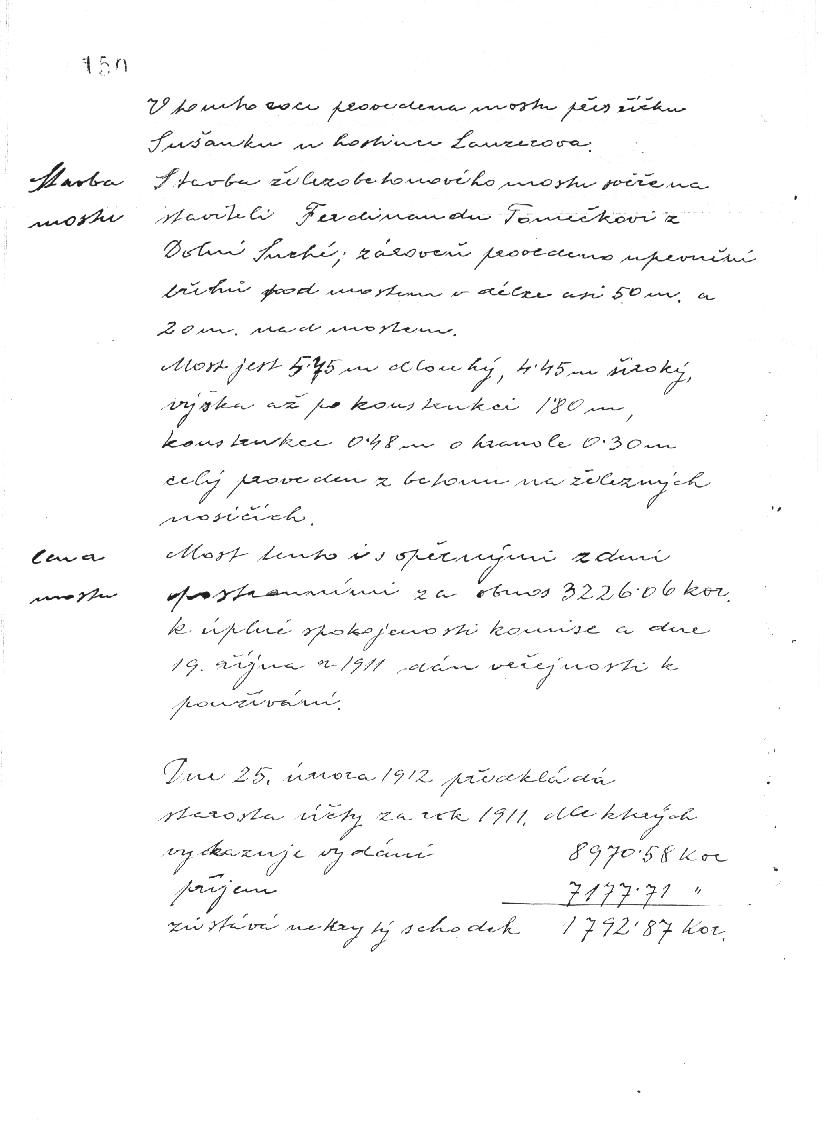 150
V tomto roce provedena mostu přes říčku
Sušanku u hostince Lanzerova.
Stavba Stavba železobetonového mostu svěřena
mostu staviteli Ferdinandu Tomečkovi z
Dolní Suché; zároveň provedeno upevnění
břehů pod mostem v délze asi 50 m. a
20 m. nad mostem.
Most jest 5.75 m dlouhý, 4.45 m široký,
výška až po konstrukci 1.80 m,
konstrukce 0.48 m o hranole 0.30 m
celý proveden z betonu na železných
nosičích.
Cena Most tento i s opěrnými zdmi
mostu postranními za obnos 3226.06 kor.
k úplné spokojenosti komise a dne
19. října r 1911 dán veřejnosti k
používání.
Dne 25. února 1912 předkládá
starosta účty za rok 1911, dle kterých
vykazuje vydání 8970.58 Kor
příjem 7177.71 "
zůstává nekrytý schodek 1792.87 Kor.